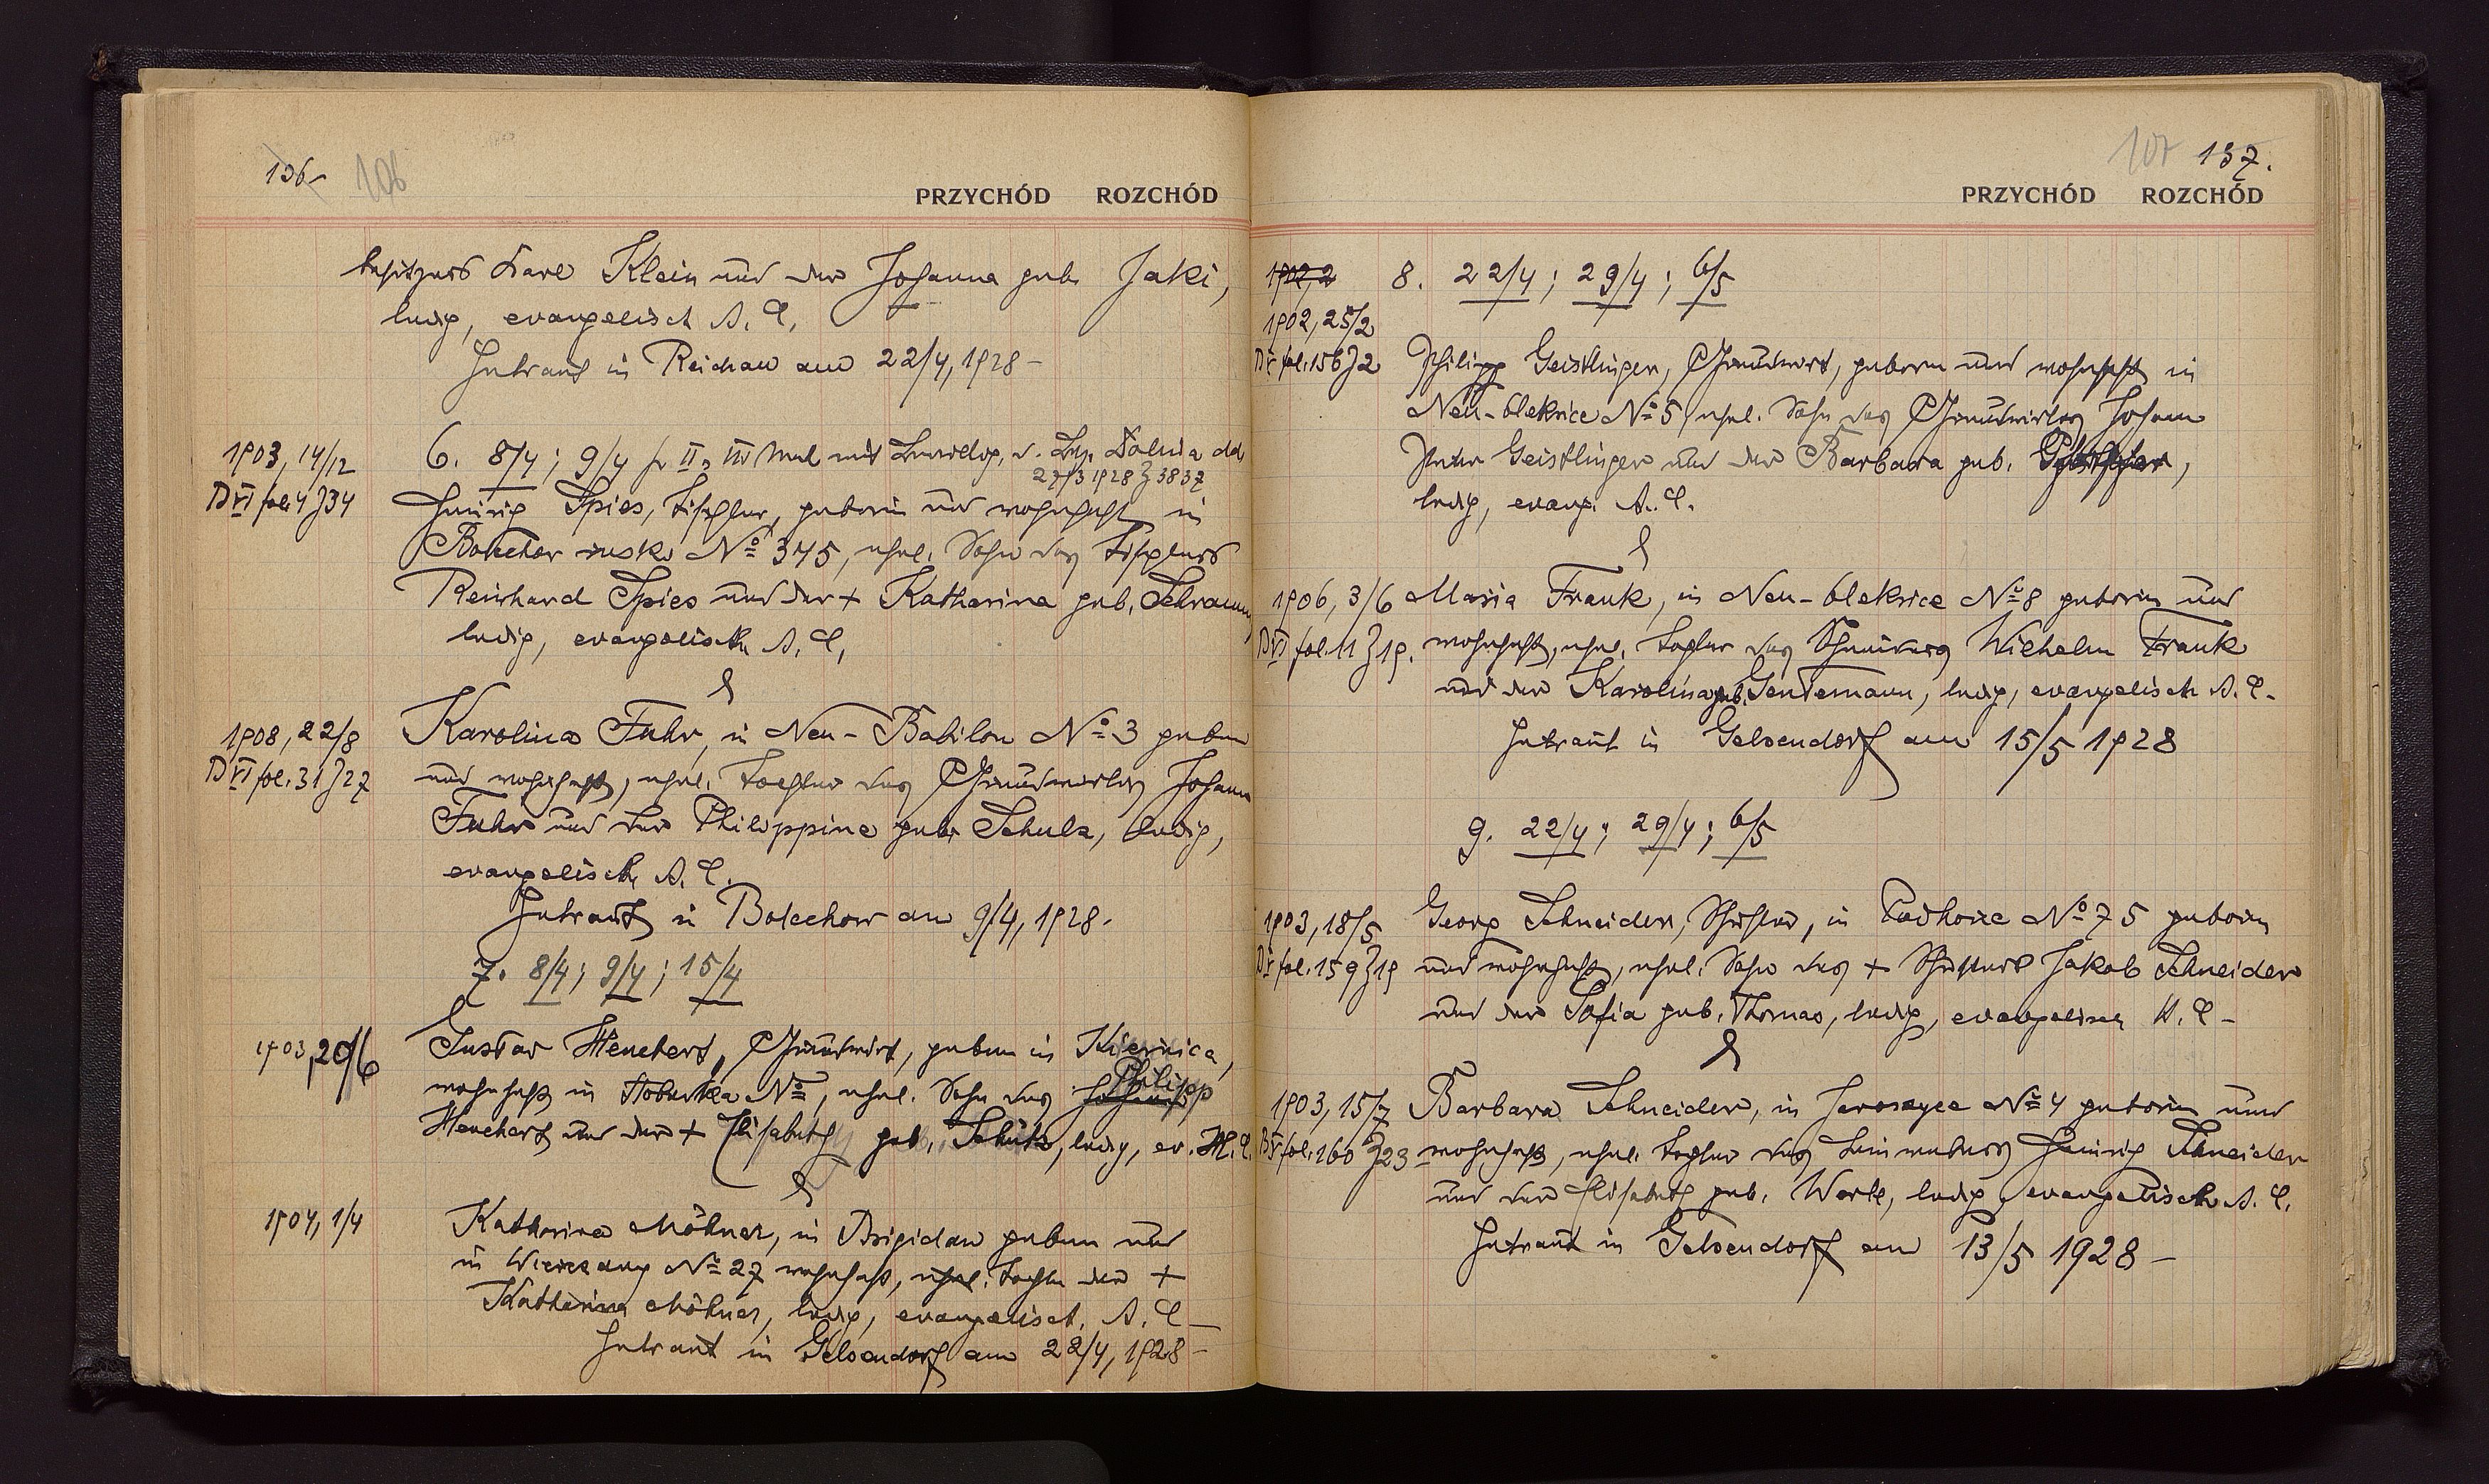 136-
106
PRZYCHÓD ROZCHÓD
besitzers Karl Klein und der Johanna geb. Jaki,
ledig, evangelisch A. C.
Getraut in Reichau am 22/4, 1928 -
1903, 14/12
6. 8/4; 9/4 II, III Mal mit
27/3 1928 Z 3837
D VI fol. 4 Z 34
Heinrich Spies, Tischler, geboren und wohnhaft in
Bolechów ruski No 345, ehel. Sohn des Tischlers
Reinhard Spies und der + Katharina geb. Schramm,
ledig, evangelisch A. C.
&
1908, 22/8
Karolina Fuhr, in Neu-Babilon No 3 geboren
D VI fol. 31 Z 27
und wohnhaft, ehel. Tochter des Grundwirtes Johann
Fuhr und der Philippine geb. Schulz, ledig,
evangelisch A. C.
Getraut in Bolechow am 9/4, 1928.
7. 8/4; 9/4; 15/4
1903, 20/6
Gustav Henchert, Grundwirt, geboren in Kiernica,
wohnhaft in No, ehel. Sohn des Philipp
Henchert und der + Elisabeth geb. Schütz, ledig, ev. H. C.
&
1904, 1/4
Katharina Möhner, in Brigidau geboren und
in No 27 wohnhaft, ehel. Tochter der +
Katharina Möhner, ledig, evangelisch. A. C -
Getraut in Gelsendorf am 22/4, 1928 -
107 137.
PRZYCHÓD ROZCHÓD
8. 22/4; 29/4; 6/5
1902, 25/2
D V fol. 156 Z 2
Philipp Geistlinger, Grundwirt, geboren und wohnhaft in
Neu-Oleksice No 5, ehel. Sohn des Grundwirtes Johann
Peter Geistlinger und der Barbara geb.
ledig, evang. A. C.
&
1906, 3/6
Maria Frank, in Neu-Oleksice No 8 geboren und
D VI fol. 11 Z 19.
wohnhaft, ehel. Tochter des Wilhelm Frank
und der Karolina geb. Gentemann, ledig, evangelisch A. C -
Getraut in Gelsendorf am 15/5 1928
9. 22/4; 29/4; 6/5
1903, 18/5
Georg Schneider, Schuster, in Podhorce No 75 geboren
D V fol. 159 Z 19
und wohnhaft, ehel. Sohn des + Schusters Jakob Schneider
und der Sofia geb. Thomas, ledig, evangelisch H. C -
&
1903, 15/7
Barbara Schneider, in Jaroszyce No 4 geboren und
D V fol. 160 Z 23
wohnhaft, ehel. Tochter des Leinwebers Heinrich Schneider
und der Elisabeth geb. Worle, ledig, evangelisch A. C.
Getraut in Gelsendorf am 13/5 1928 -